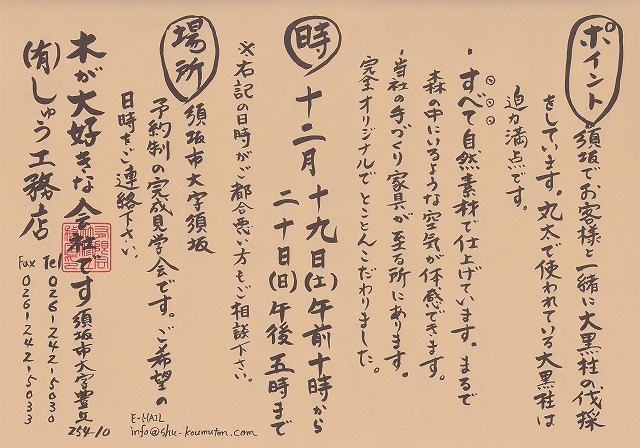 ポイント
須坂でお客様と一緒に大黒柱の伐採
をしています。丸太で使われている大黒柱は
迫力満点です。
・すべて自然素材で仕上げています。まるで
森の中にいるような空気が体感できます。
・当社の手づくり家具が至る所にあります。
完全オリジナルでとことんこだわりました。
時
十二月十九日(土)午前十時から
二十日(日)午後五時まで
※右記の日時がご都合悪い方もご相談下さい。
場所
須坂市大字須坂
予約制の完成見学会です。ご希望の
日時をご連絡下さい。
木が大好きな会社です
須坂市大字豊丘
254-10
(有)しゅう工務店
Tel 026-242-5030
Fax 026-242-5033
E-MAIL
info@shu-koumuten.com